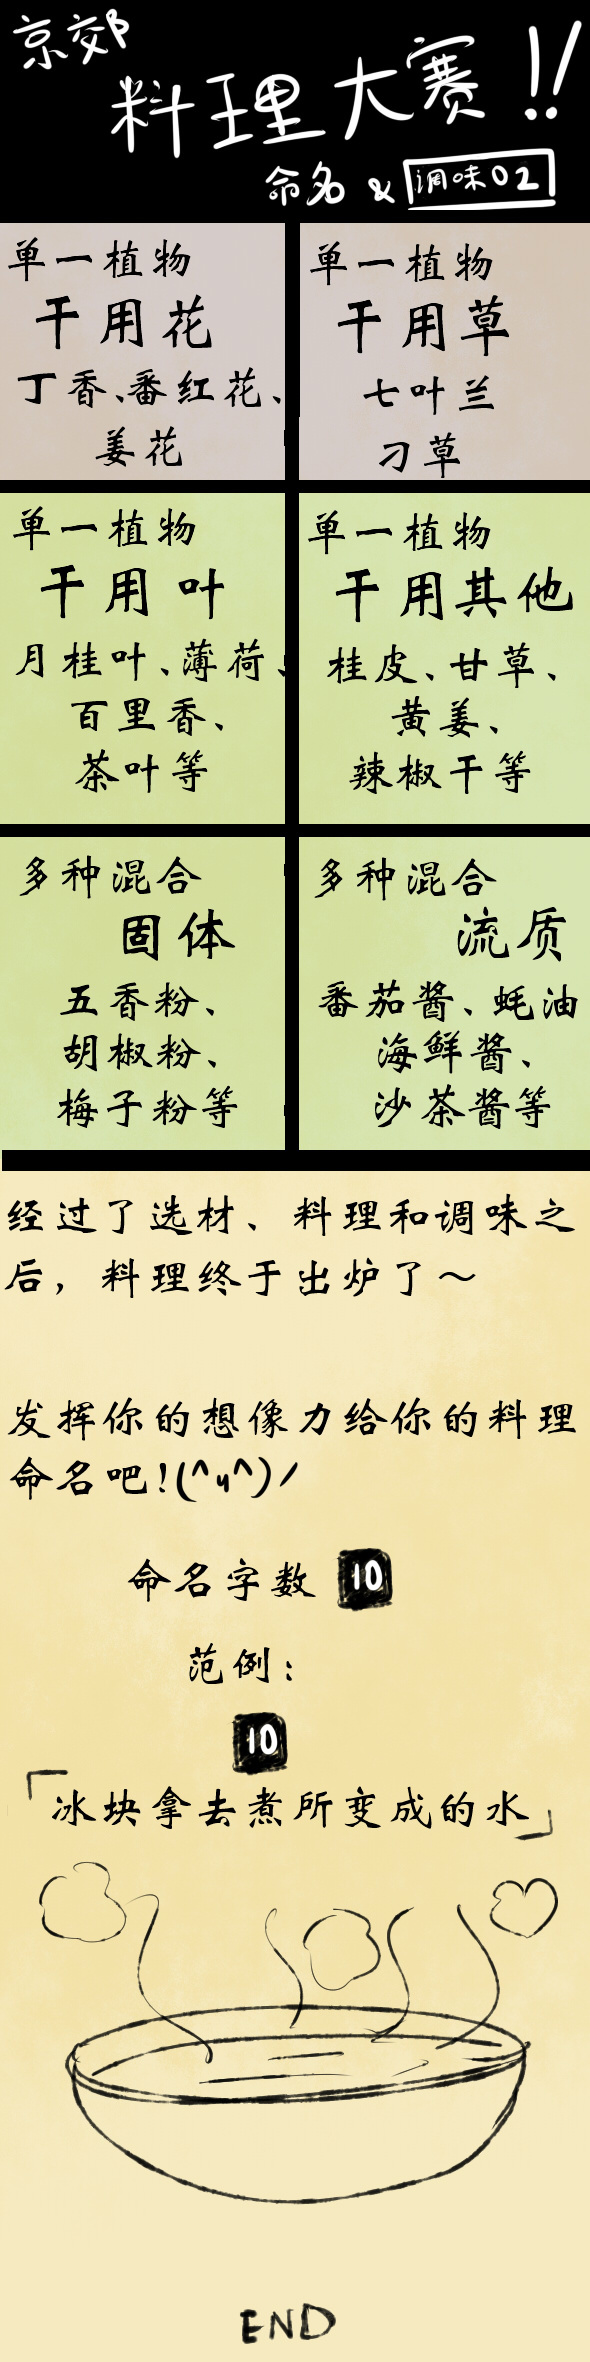 京郊
料理大赛!!
命名 & 调味02
单一植物
干用花
丁香、番红花、
姜花
单一植物
干用草
七叶兰
刁草
单一植物
干用叶
月桂叶、薄荷、
百里香、
茶叶等
单一植物
干用其他
桂皮、甘草、
黄姜、
辣椒干等
多种混合
固体
五香粉、
胡椒粉、
梅子粉等
多种混合
流质
番茄酱、蚝油
海鲜酱、
沙茶酱等
经过了选材、料理和调味之
后，料理终于出炉了～
发挥你的想像力给你的料理
命名吧!(^u^)/
命名字数 10
范例：
10
「冰块拿去煮所变成的水」
END